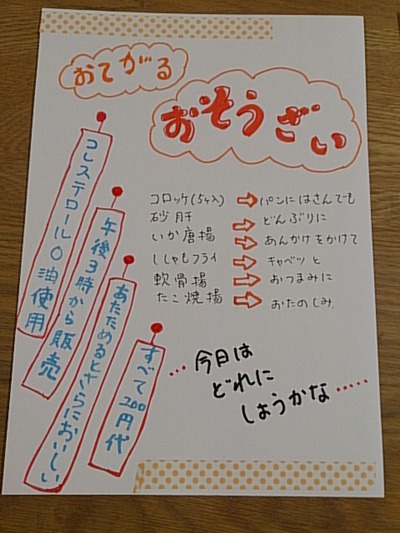 おてがる
おそうざい
コロッケ(5ケ入)⇨パンにはさんでも
砂肝⇨どんぶりに
いか唐揚⇨あんかけをかけて
ししゃもフライ⇨キャベツと
軟骨揚⇨おつまみに
たこ焼揚⇨おたのしみ
コレステロール0油使用
午後3時から販売
あたためるとさらにおいしい
すべて200円代
…今日は
どれに
しようかな……